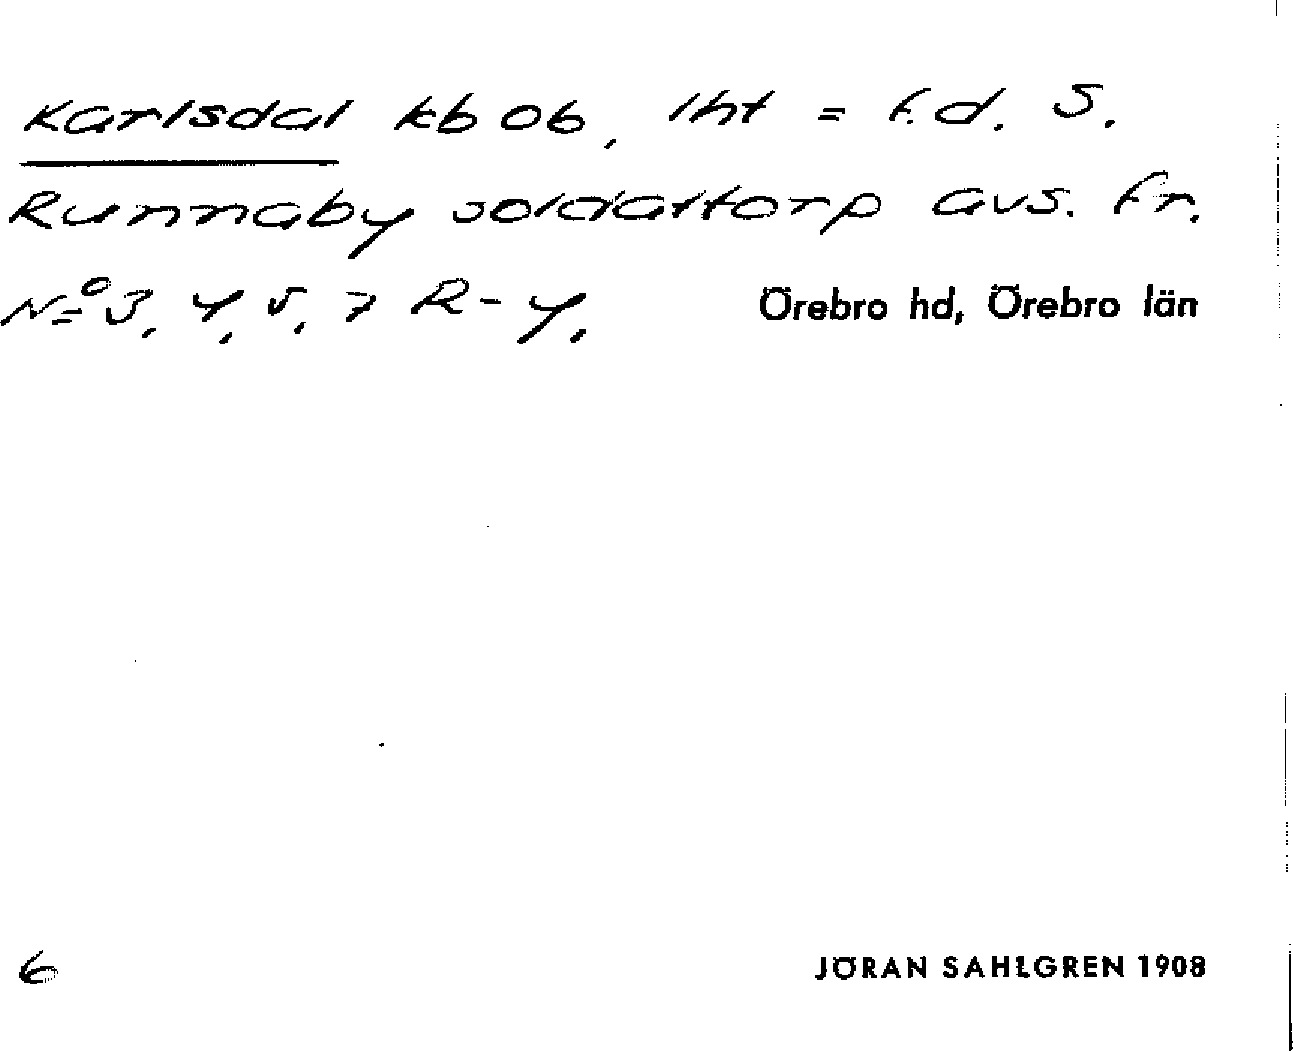 Karlsdal kb 06, lht = f.d. S.
Runnaby soldattorp avs. fr.
No 3, 4, 5, 7 R-y.
Örebro hd, Örebro län
6
JÖRAN SAHLGREN 1908